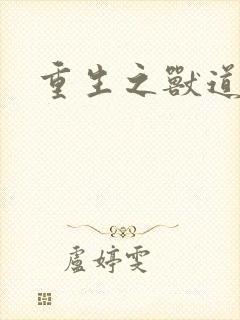 重生之獸道
盧婷雯